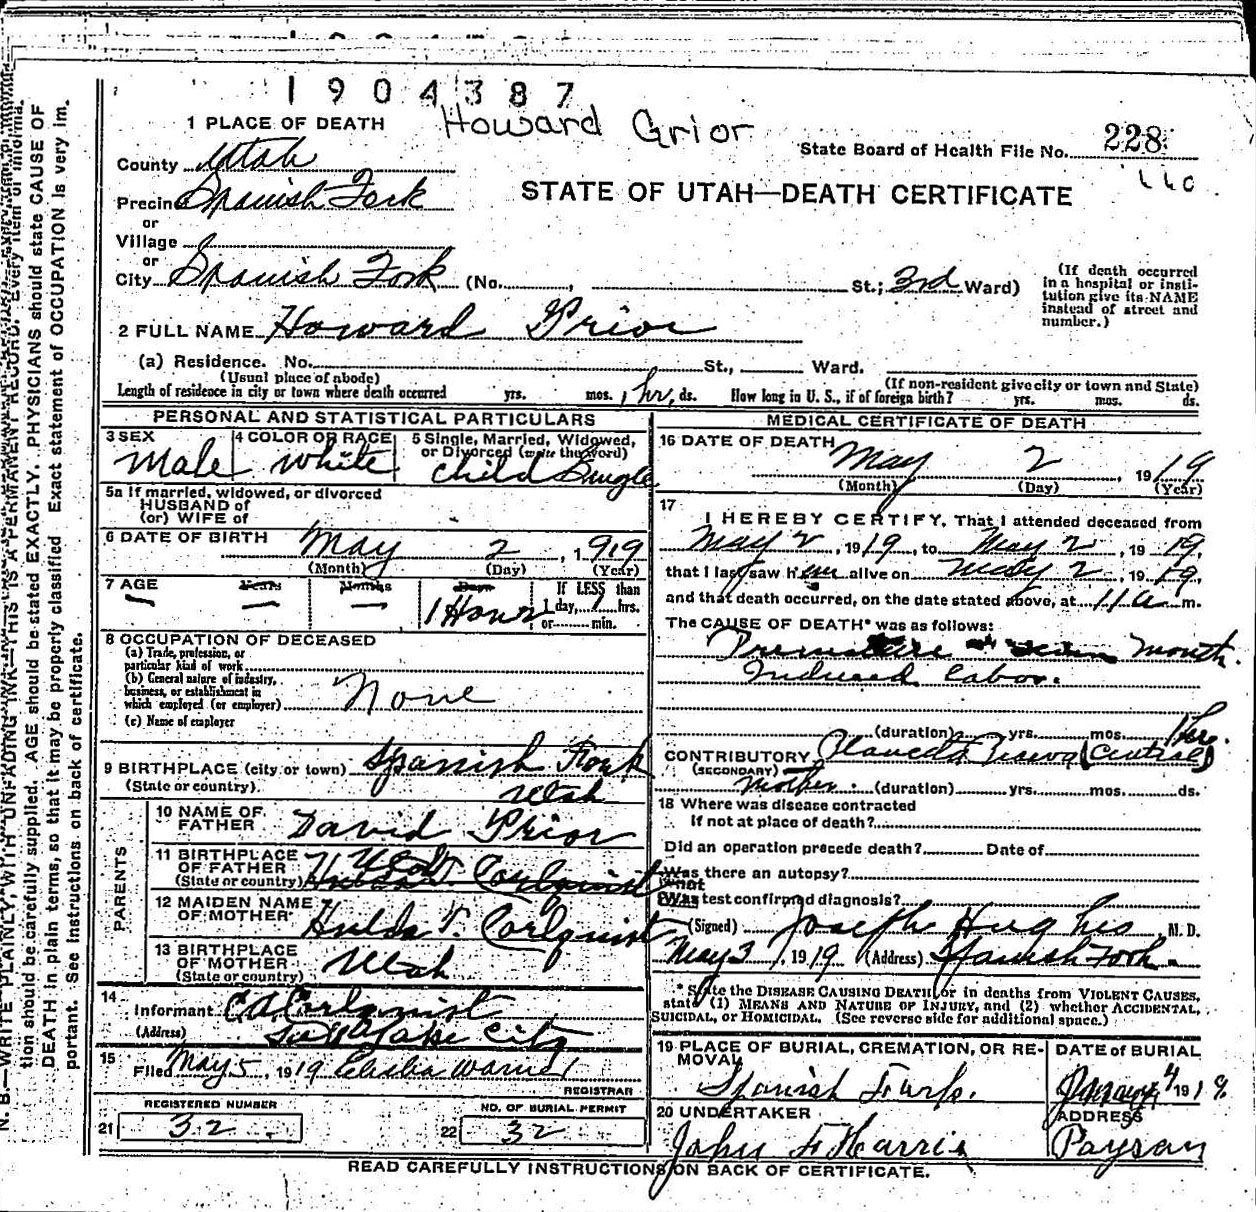 1904387
Howard Grior
1 PLACE OF DEATH
State Board of Health File No. 228
County Utah
STATE OF UTAH—DEATH CERTIFICATE
Precinct Spanish Fork
or
Village
or
City Spanish Fork (No. , St.; 3rd Ward)
(If death occurred in a hospital or institution give its NAME instead of street and number.)
2 FULL NAME Howard Prior
(a) Residence. No. St., Ward.
(Usual place of abode)
(If non-resident give city or town and State)
Length of residence in city or town where death occurred yrs. mos. 1 hr. ds. How long in U. S., if of foreign birth? yrs. mos. ds.
PERSONAL AND STATISTICAL PARTICULARS
3 SEX
Male
4 COLOR OR RACE
White
5 Single, Married, Widowed, or Divorced (write the word)
Child Single
5a If married, widowed, or divorced
HUSBAND of
(or) WIFE of
6 DATE OF BIRTH May 2, 1919
(Month) (Day) (Year)
7 AGE Years Months Days If LESS than
— — 1 Hour 1 day, 1 hrs.
or min.
8 OCCUPATION OF DECEASED
(a) Trade, profession, or particular kind of work
(b) General nature of industry, business, or establishment in which employed (or employer) None
(c) Name of employer
9 BIRTHPLACE (city or town) Spanish Fork
(State or country) Utah
PARENTS
10 NAME OF FATHER David Prior
11 BIRTHPLACE OF FATHER (State or country) Utah
12 MAIDEN NAME OF MOTHER Hulda T. Carlquist
13 BIRTHPLACE OF MOTHER (State or country) Utah
14
Informant C.A. Carlquist
(Address) Salt Lake City
15
Filed May 5, 1919 Warner
REGISTRAR
REGISTERED NUMBER
21 32
NO. OF BURIAL PERMIT
22 32
MEDICAL CERTIFICATE OF DEATH
16 DATE OF DEATH May 2, 1919
(Month) (Day) (Year)
17
I HEREBY CERTIFY, That I attended deceased from
May 2, 1919, to May 2, 1919,
that I last saw him alive on May 2, 1919,
and that death occurred, on the date stated above, at 11 a m.
The CAUSE OF DEATH* was as follows:
Premature seven month.
Induced Labor.
(duration) yrs. mos. 1 hr.
CONTRIBUTORY Placenta Previa (Central)
(SECONDARY)
Mother. (duration) yrs. mos. ds.
18 Where was disease contracted
If not at place of death?
Did an operation precede death? Date of
Was there an autopsy?
What test confirmed diagnosis?
(Signed) Joseph Hughes, M. D.
May 3, 1919 (Address) Spanish Fork.
* State the DISEASE CAUSING DEATH, or in deaths from VIOLENT CAUSES,
state (1) MEANS AND NATURE OF INJURY, and (2) whether ACCIDENTAL,
SUICIDAL, or HOMICIDAL. (See reverse side for additional space.)
19 PLACE OF BURIAL, CREMATION, OR REMOVAL
Spanish Fork.
DATE of BURIAL
May 4 1919
20 UNDERTAKER
John F Harris
ADDRESS
Payson
READ CAREFULLY INSTRUCTIONS ON BACK OF CERTIFICATE.
N. B.—WRITE PLAINLY, WITH UNFADING INK—THIS IS A PERMANENT RECORD. Every item of information should be carefully supplied. AGE should be stated EXACTLY. PHYSICIANS should state CAUSE OF
DEATH in plain terms, so that it may be properly classified. Exact statement of OCCUPATION is very important. See instructions on back of certificate.